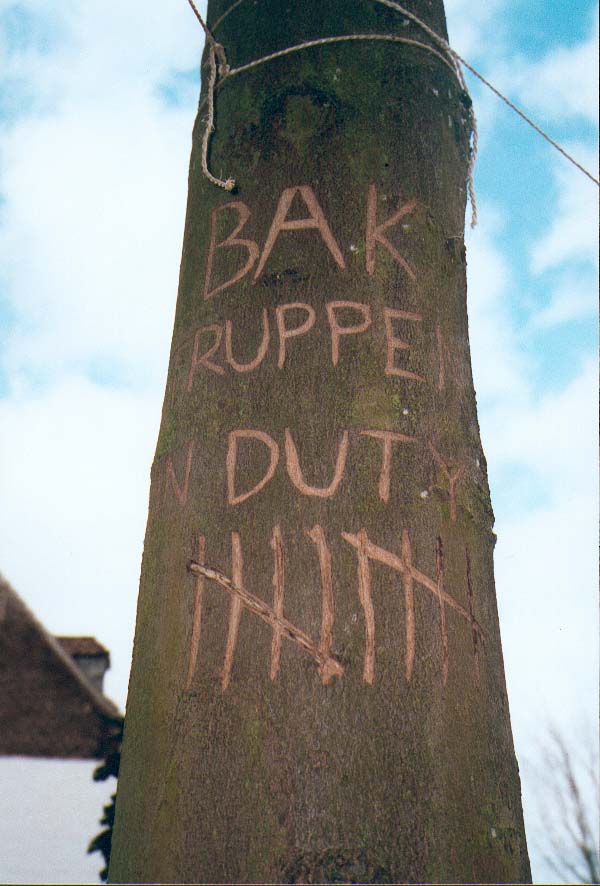 BAK
RUPPE
N DUTY